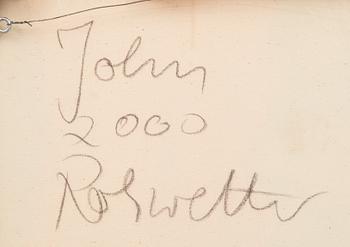 John
2000
Rolswetter